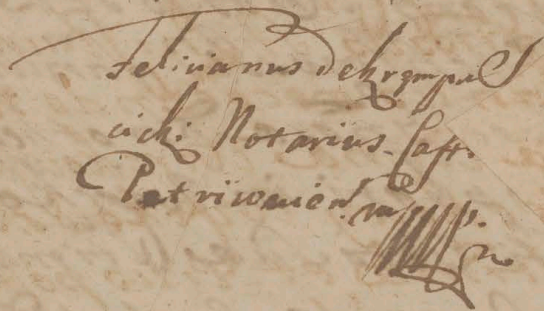 Felicianus Dekrempul
cicki Notarius Castr.
Petricovien. mpp.